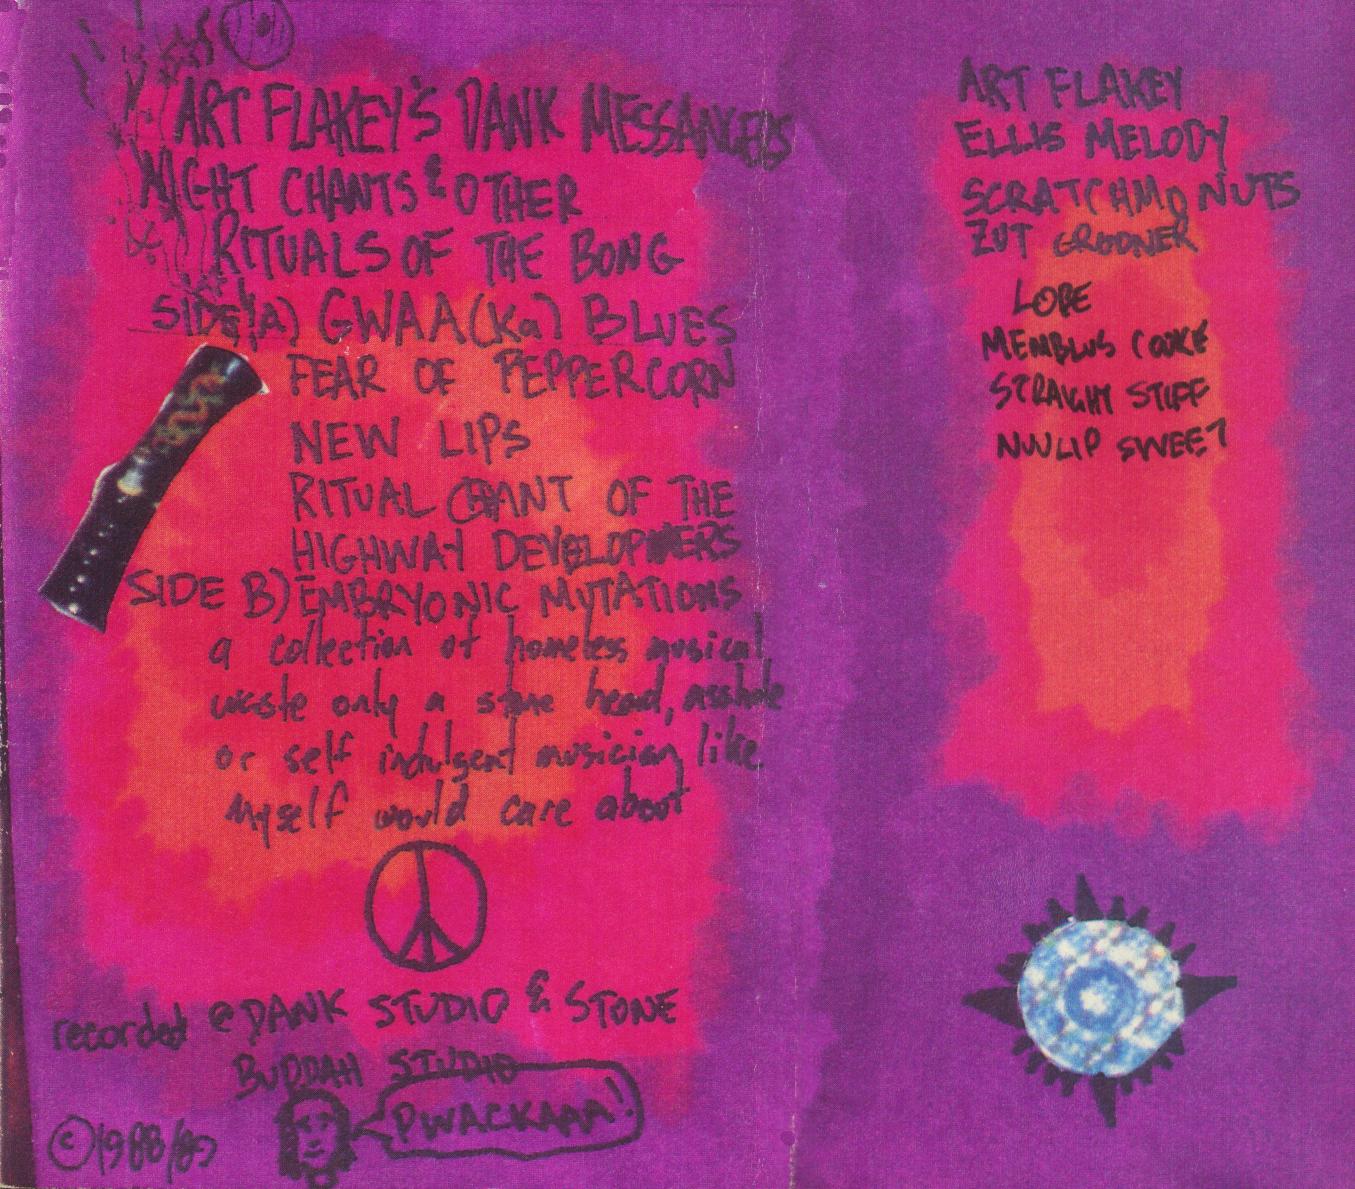 ART FLAKEY'S DANK MESSANGERS
NIGHT CHANTS & OTHER
RITUALS OF THE BONG
SIDE A) GWAA(Ka) BLUES
FEAR OF PEPPERCORN
NEW LIPS
RITUAL CHANT OF THE
HIGHWAY DEVELOPMERS
SIDE B) EMBRYONIC MUTATIONS
a collection of homeless musical
waste only a stone head, asshole
or self indulgent musician like
myself would care about
recorded @ DANK STUDIO & STONE
BUDDAH STUDIO
PWACKAAA!
©1988/89
ART FLAKEY
ELLIS MELODY
SCRATCHMO NUTS
ZUT GRODNER
LOBE
MEMBLUS COOKE
STRAIGHT STIFF
NUULIP SWEET